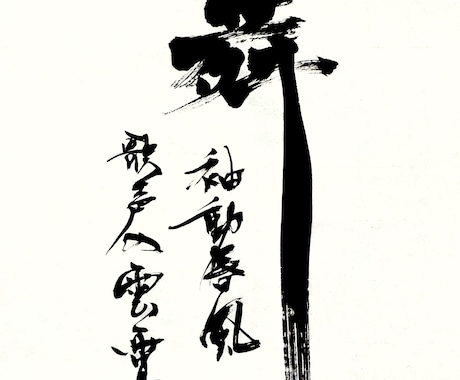 舞
袖動春風
歌声入雲